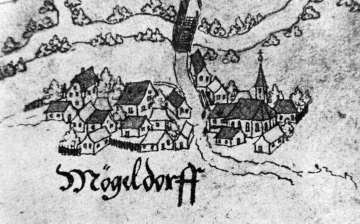 Mögeldorff